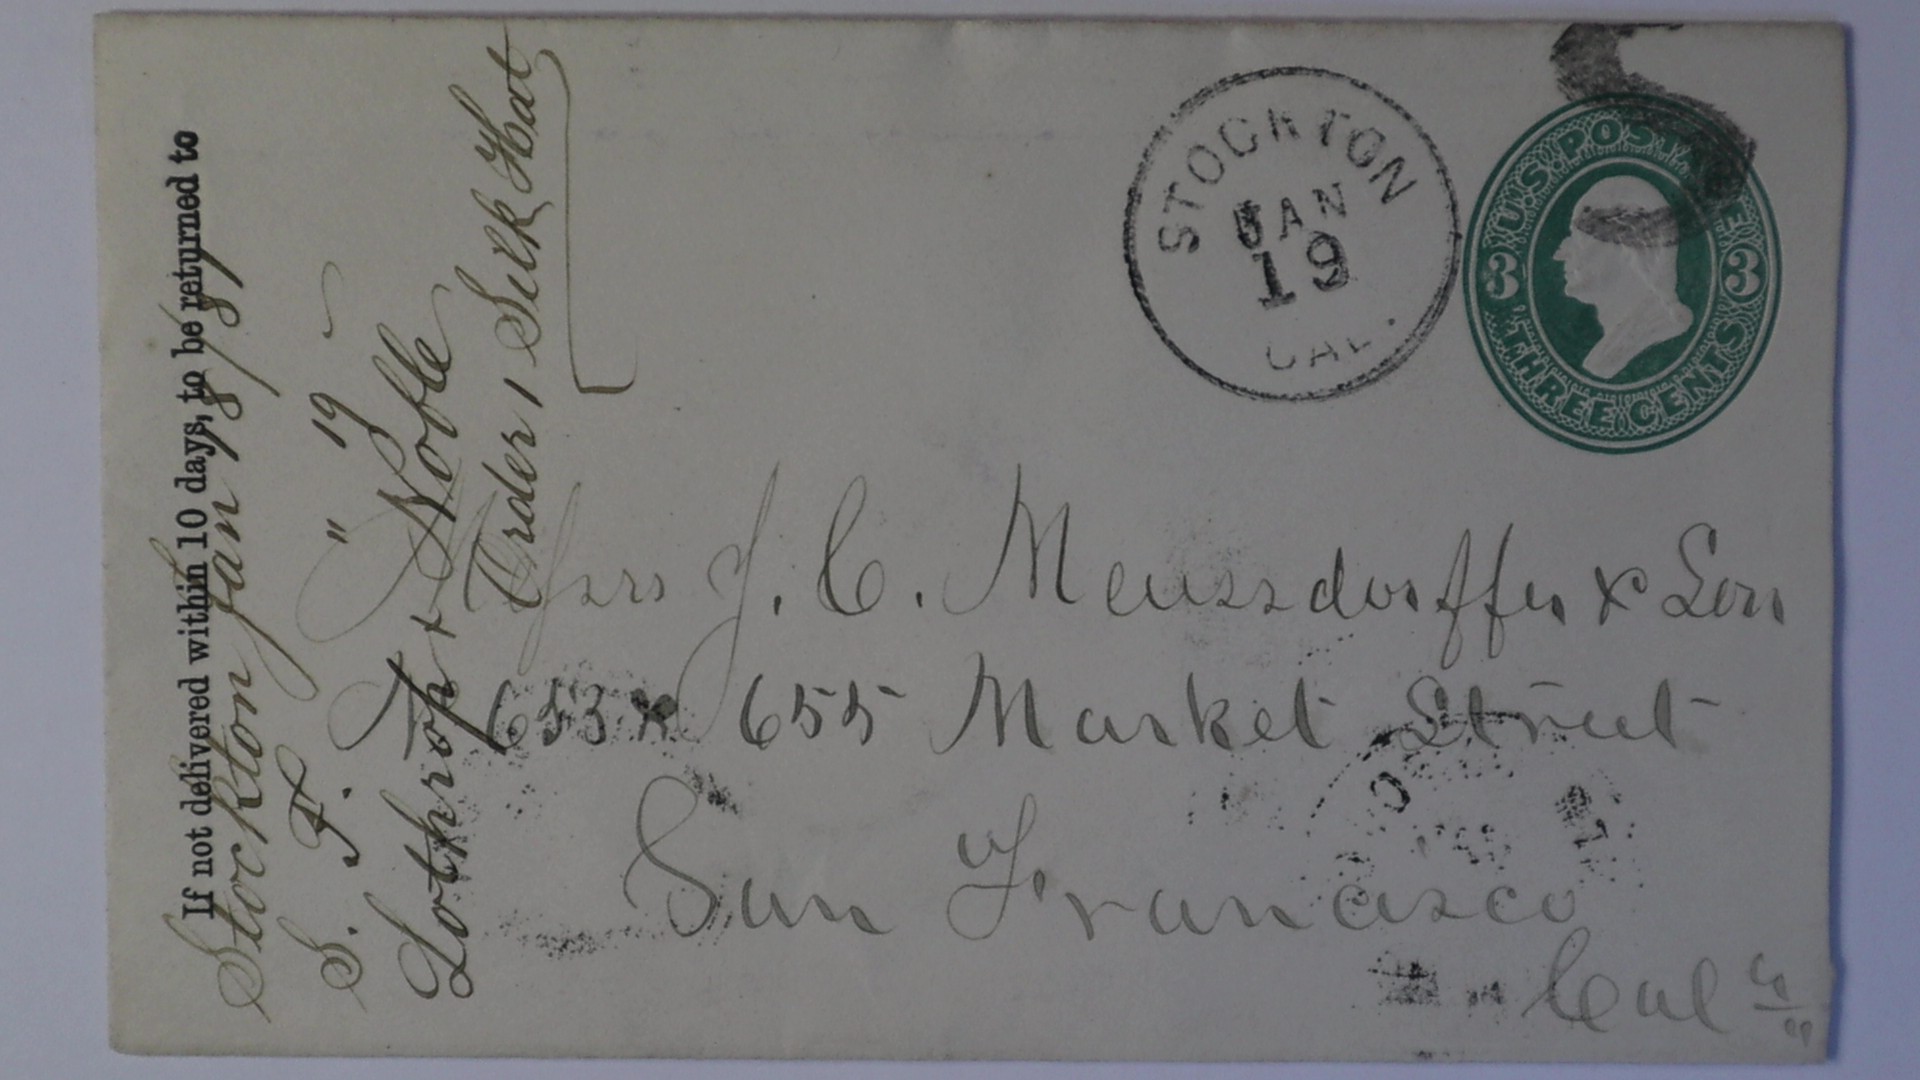 If not delivered within 10 days, to be returned to
Stockton Jan 18/81
S. F. " 19
Lothrop + Noble
Order 1 Silk Hat
STOCKTON
JAN
19
CAL.
U.S. POSTAGE
3 3
THREE CENTS
J. C. Meussdorffer & Son
653 & 655 Market Street
San Francisco
Cal